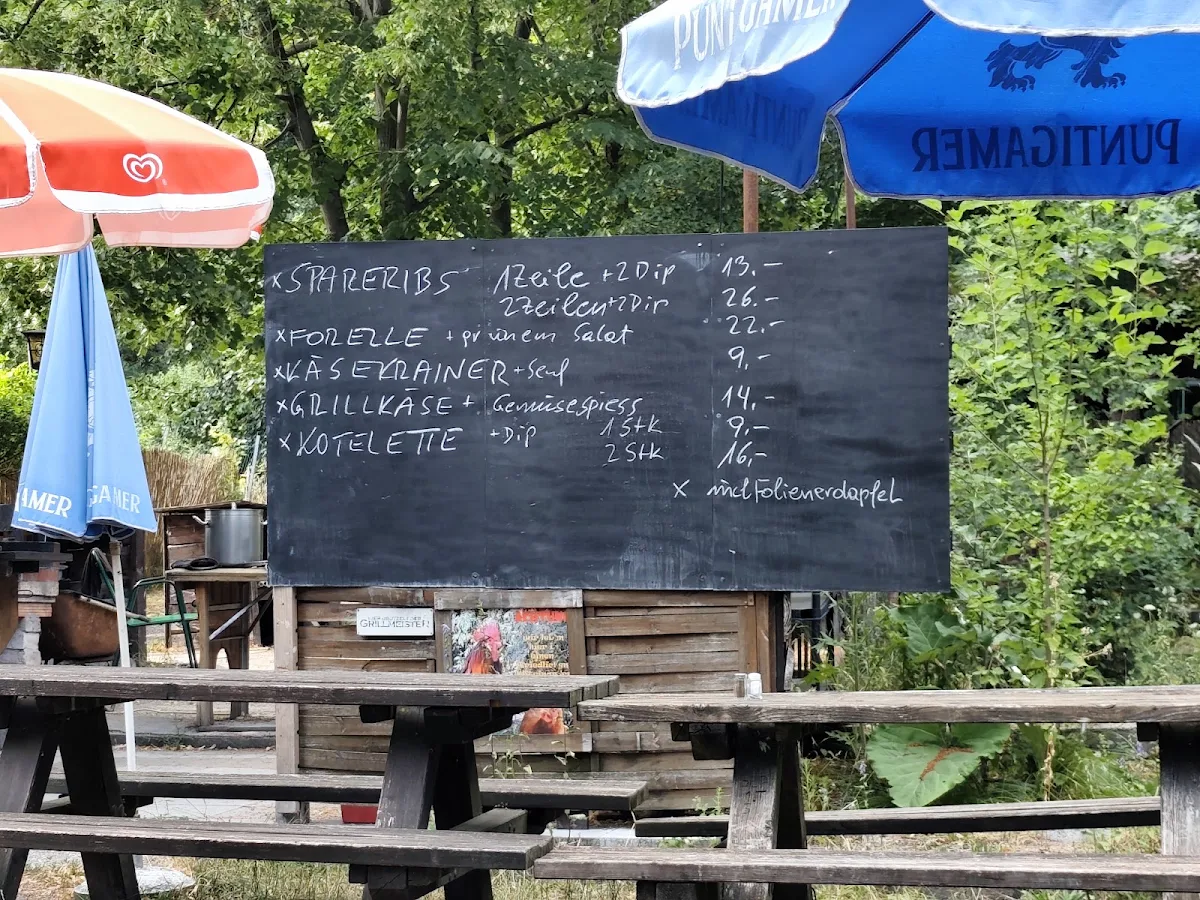 PUNTIGAMER
PUNTIGAMER
PUNTIGAMER
x SPARERIBS 1 Zeile + 2 Dip 13.-
2 Zeilen + 2 Dip 26.-
x FORELLE + grünem Salat 22.-
x KÄSEKRAINER + Senf 9,-
x GRILLKÄSE + Gemüsespiess 14,-
x KOTELETTE + Dip 1 Stk 9,-
2 Stk 16,-
x incl Folienerdapfel
AMER
GAMER
GRILLMEISTER